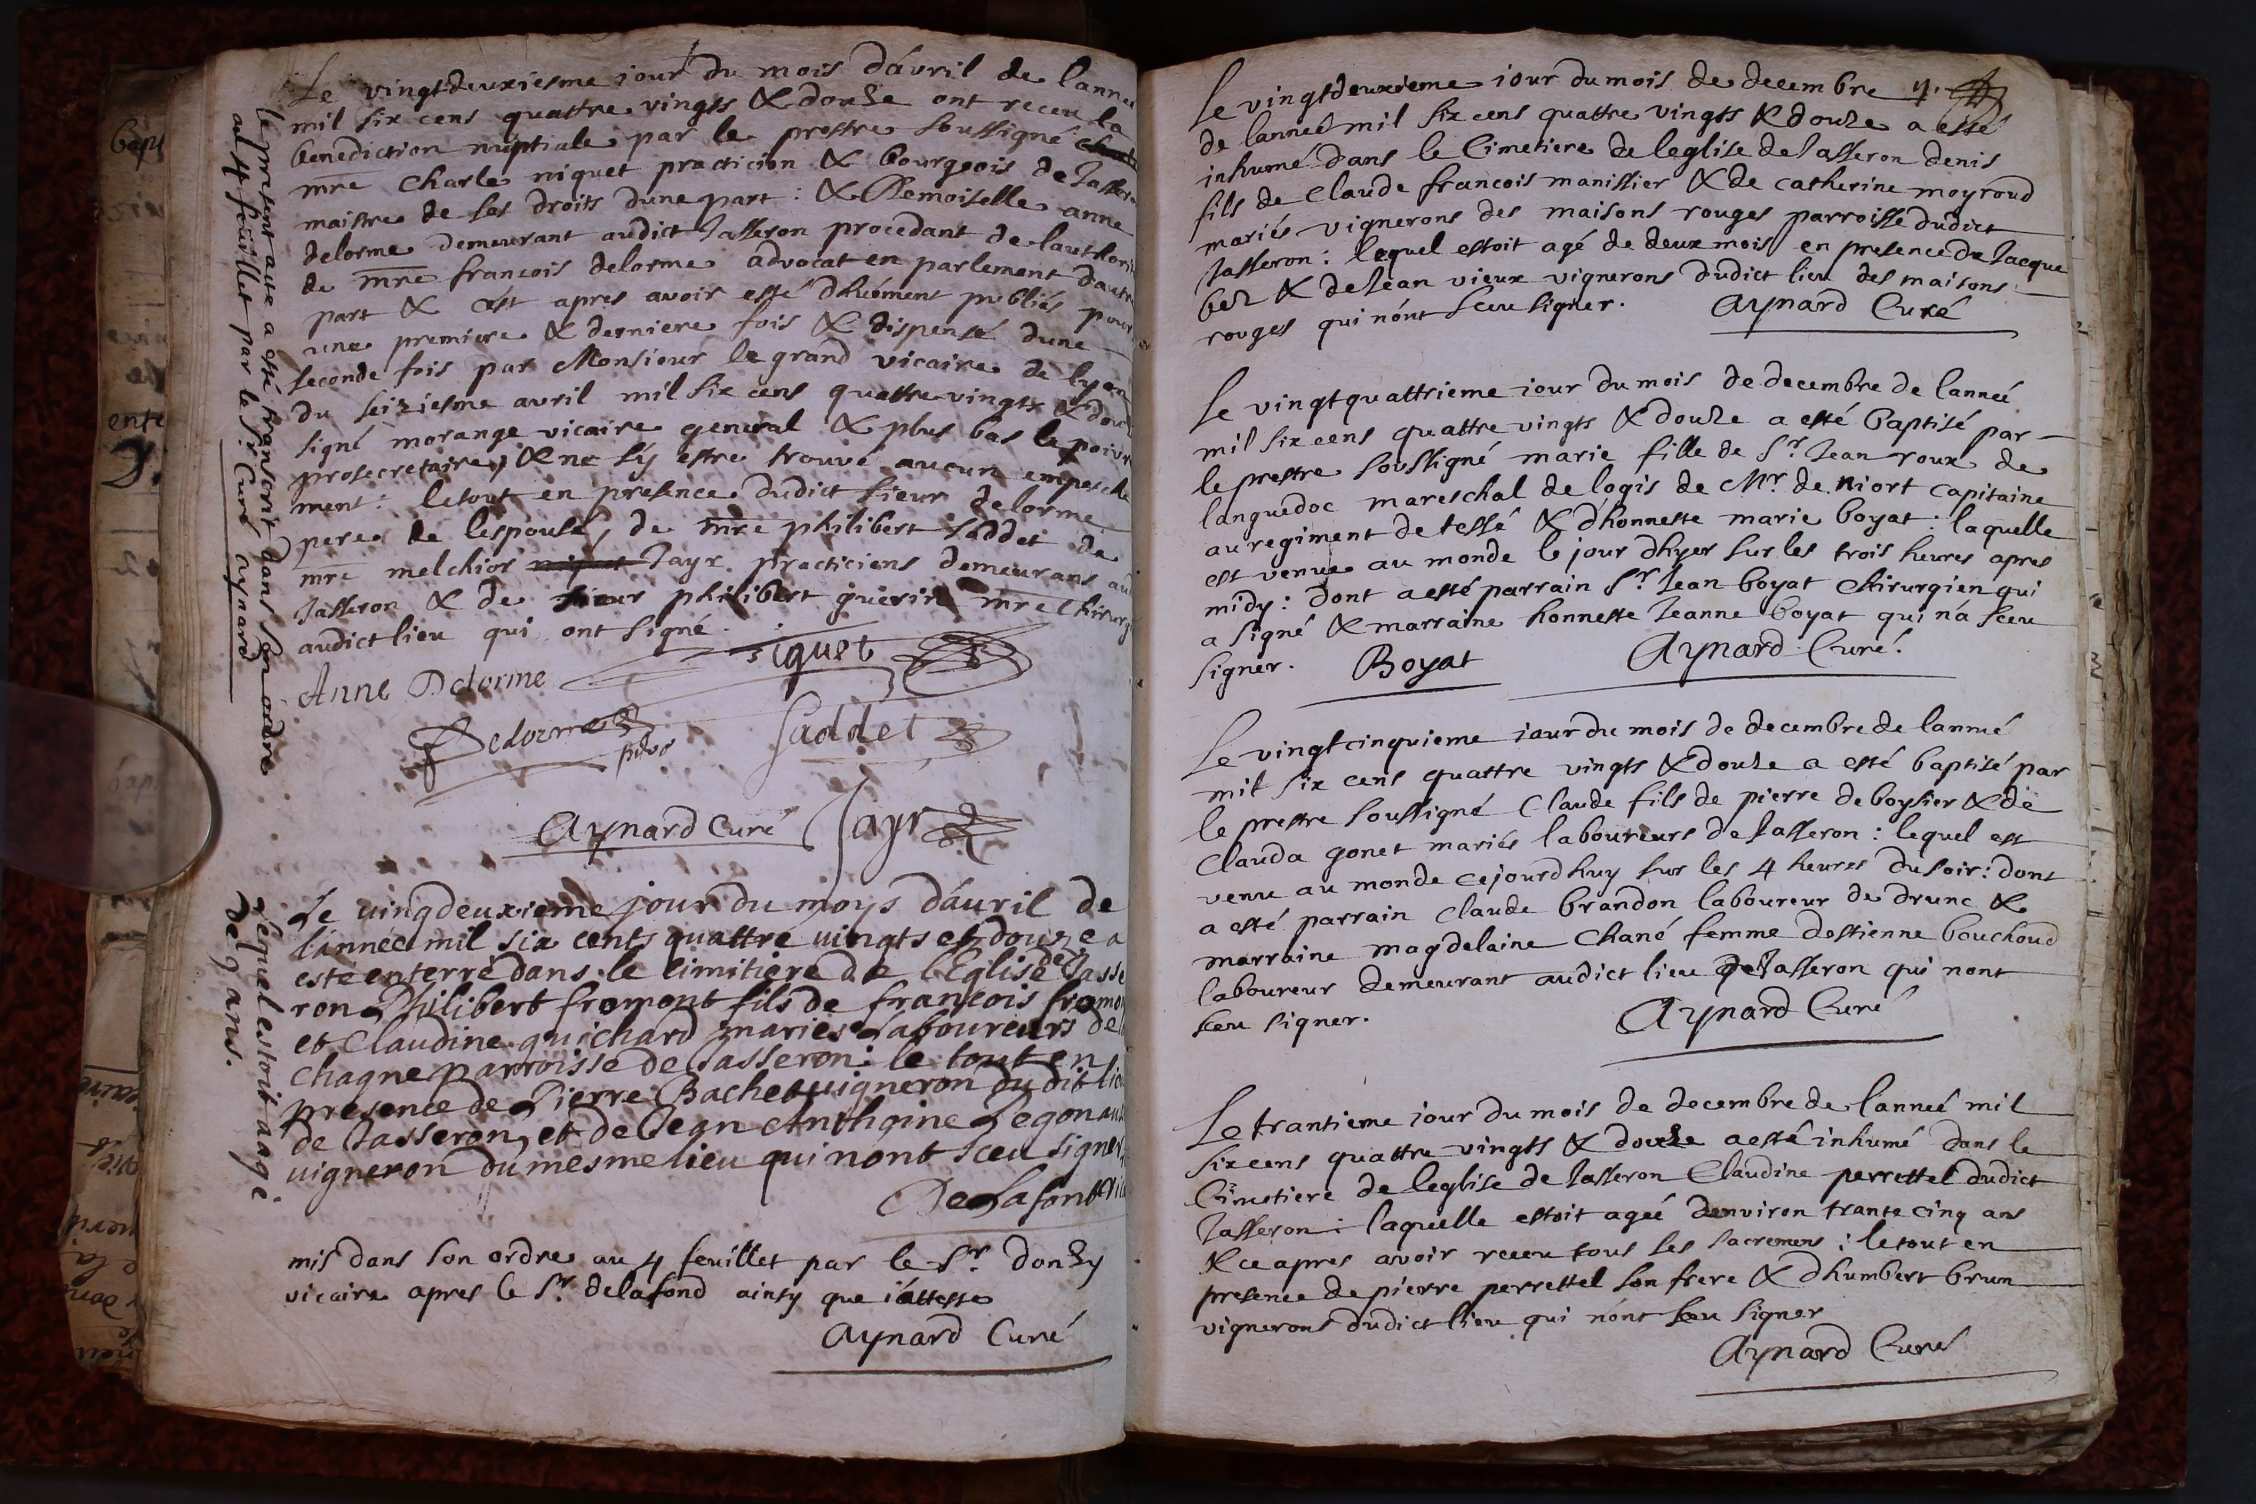 Le vingtdeuxiesme iour du mois d'avril de lannee
mil six cens quattre vingts & douze ont receu la
benediction nuptiale par le prestre soussigné
mre Charle niquet practicien & bourgeois de Jasseron
maistre de ses droits dune part : & Demoiselle anne
delorme demeurant audict Jasseron procedant de lauthorité
de mre francois delorme advocat en parlement dautre
part & c'est apres avoir esté dhuément publiés pour
une premiere & derniere fois & dispensé dune
seconde fois par Monsieur le grand vicaire de lyon
du seiziesme avril mil six cens quattre vingts & douze
signé morange vicaire general & plus bas le poivre
prosecretaire, & ne s'y estre trouvé aucun empesche
ment : le tout en presence dudict sieur delorme
pere de lespouse, de mre philibert saddet de
mre melchior niquet Jayr practiciens demeurans audict
Jasseron & de sieur philibert guerin mre chirurgien
audict lieu qui ont signé.
niquet
Anne Delorme
Delorme
saddet
Aynard Curé Jayr
le present acte a esté transcrit dans son ordre
au 4 feuillet par le Sr. Curé aynard
Le vingdeuxieme jour du moys d'auril de
l'année mil six cents quattre uingts et douze a
esté enterré dans le cimitiere de l'Eglise de Jasse
ron Philibert fromont fils de francois fromont
et Claudine guichard mariés Laboureurs de
Chagne parroisse de Jasseron : le tout en
presence de Pierre Bachet uigneron du dit lieu
de Jasseron, et de Jean Anthoine Legonaux
uigneron du mesme lieu qui n'ont sceu signer.
De Lafont vic
lequel estoit aagé
de 9 ans.
mis dans son ordre au 4 feuillet par le Sr. donzy
vicaire apres le Sr. delafond ainsy que i'atteste
Aynard Curé
Le vingtdeuxieme iour du mois de decembre 4.
de lanneé mil six cens quattre vingts & douze a esté
inhumé dans le Cimetiere de leglise de Jasseron denis
fils de Claude francois manissier & de catherine moyroud
mariés vignerons des maisons rouges parroisse dudict
Jasseron : lequel estoit agé de deux mois en presence de Jacque
bez & de Jean vieux vignerons dudict lieu des maisons
rouges qui n'ont sceu signer. Aynard Curé
Le vingtquattrieme iour du mois de decembre de lanneé
mil six cens quattre vingts & douze a esté baptisé par
le prestre soussigné marie fille de Sr. Jean roux de
languedoc mareschal de logis de Mr. de niort capitaine
au regiment de tessé & d'honneste marie boyat : laquelle
est venue au monde le jour dhyer sur les trois heures apres
midy : dont a esté parrain Sr. Jean boyat chirurgien qui
a signé & marraine honneste Jeanne boyat qui n'a sceu
signer. Boyat Aynard Curé.
Le vingtcinquieme iour du mois de decembre de lanneé
mil six cens quattre vingts & douze a esté baptisé par
le prestre soussigné Claude fils de pierre deboysier & de
Clauda gonet mariés laboureurs de Jasseron : lequel est
venu au monde cejourdhuy sur les 4 heures du soir : dont
a esté parrain Claude brandon laboureur de drunc &
marraine magdelaine Chané femme destienne bouchoud
laboureur demeurant audict lieu de Jasseron qui nont
sceu signer. Aynard Curé
Le trantieme iour du mois de decembre de lanneé mil
six cens quattre vingts & douze a esté inhumé dans le
Cimetiere de leglise de Jasseron Claudine perrettel dudict
Jasseron : laquelle estoit ageé denviron trante cinq ans
& ce apres avoir receu tous ses sacremens : le tout en
presence de pierre perrettel son frere & d'humbert brun
vignerons dudict lieu qui n'ont sceu signer
Aynard Curé